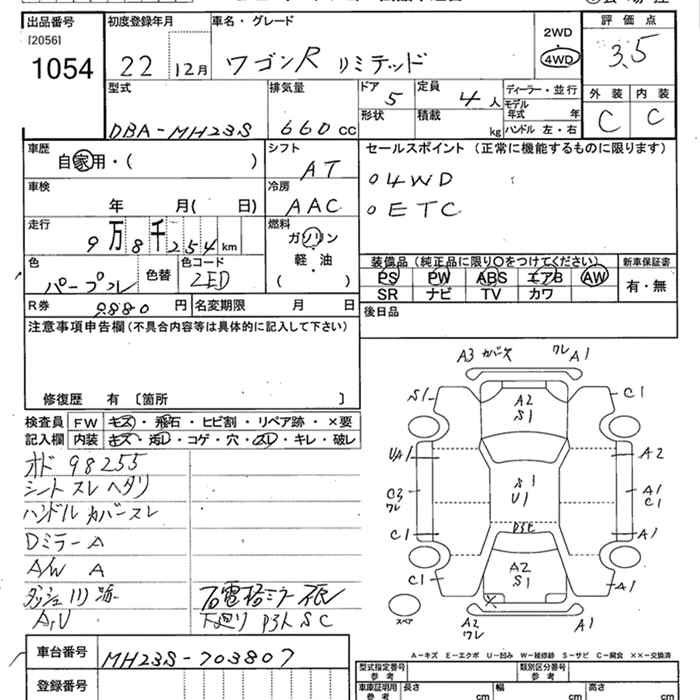 出品番号 初度登録年月 車名・グレード 評価点
[2056]
1054 22 12月 ワゴンR リミテッド 2WD 4WD 3.5
型式 排気量 ドア 定員 ディーラー・並行 外装 内装
DBA-MH23S 660cc 5 4人 モデル年式 年 C C
形状 積載 kg ハンドル 左・右
車歴 シフト セールスポイント (正常に機能するものに限ります)
自家用・( ) AT ○4WD
車検 冷房 ○ETC
年 月( 日) AAC
走行 燃料
9万8千254km ガソリン
軽・油
( )
色 色替 色コード 装備品(純正品に限り○をつけてください) 新車保証書
パープル ZED PS PW ABS エアB AW 有・無
SR ナビ TV カワ
R券 9880円 名変期限 月 日 後日品
注意事項申告欄(不具合内容等は具体的に記入して下さい)
修復歴 有 〔箇所 〕
検査員 FW キズ・飛石・ヒビ割・リペア跡・×要
記入欄 内装 キズ・汚レ・コゲ・穴・スレ・キレ・破レ
オド 98255
シート スレ ヘタリ
ハンドル カバースレ
Dミラー A
A/W A
A3 カバー欠 ワレ A1
S1 A2 S1 C1
UA1 A2
C3 ワレ S1 U1 A1 C1
C1 A1
C1 A2 S1 A1
スペア A2 ワレ A1
A-キズ E-エクボ U-凹み W-補修跡 S-サビ C-腐食 XX-交換済
車台番号 MH23S-703807
登録番号
型式指定番号 参考 類別区分番号 参考
車庫証明用 参考 長さ cm 幅 cm 高さ cm